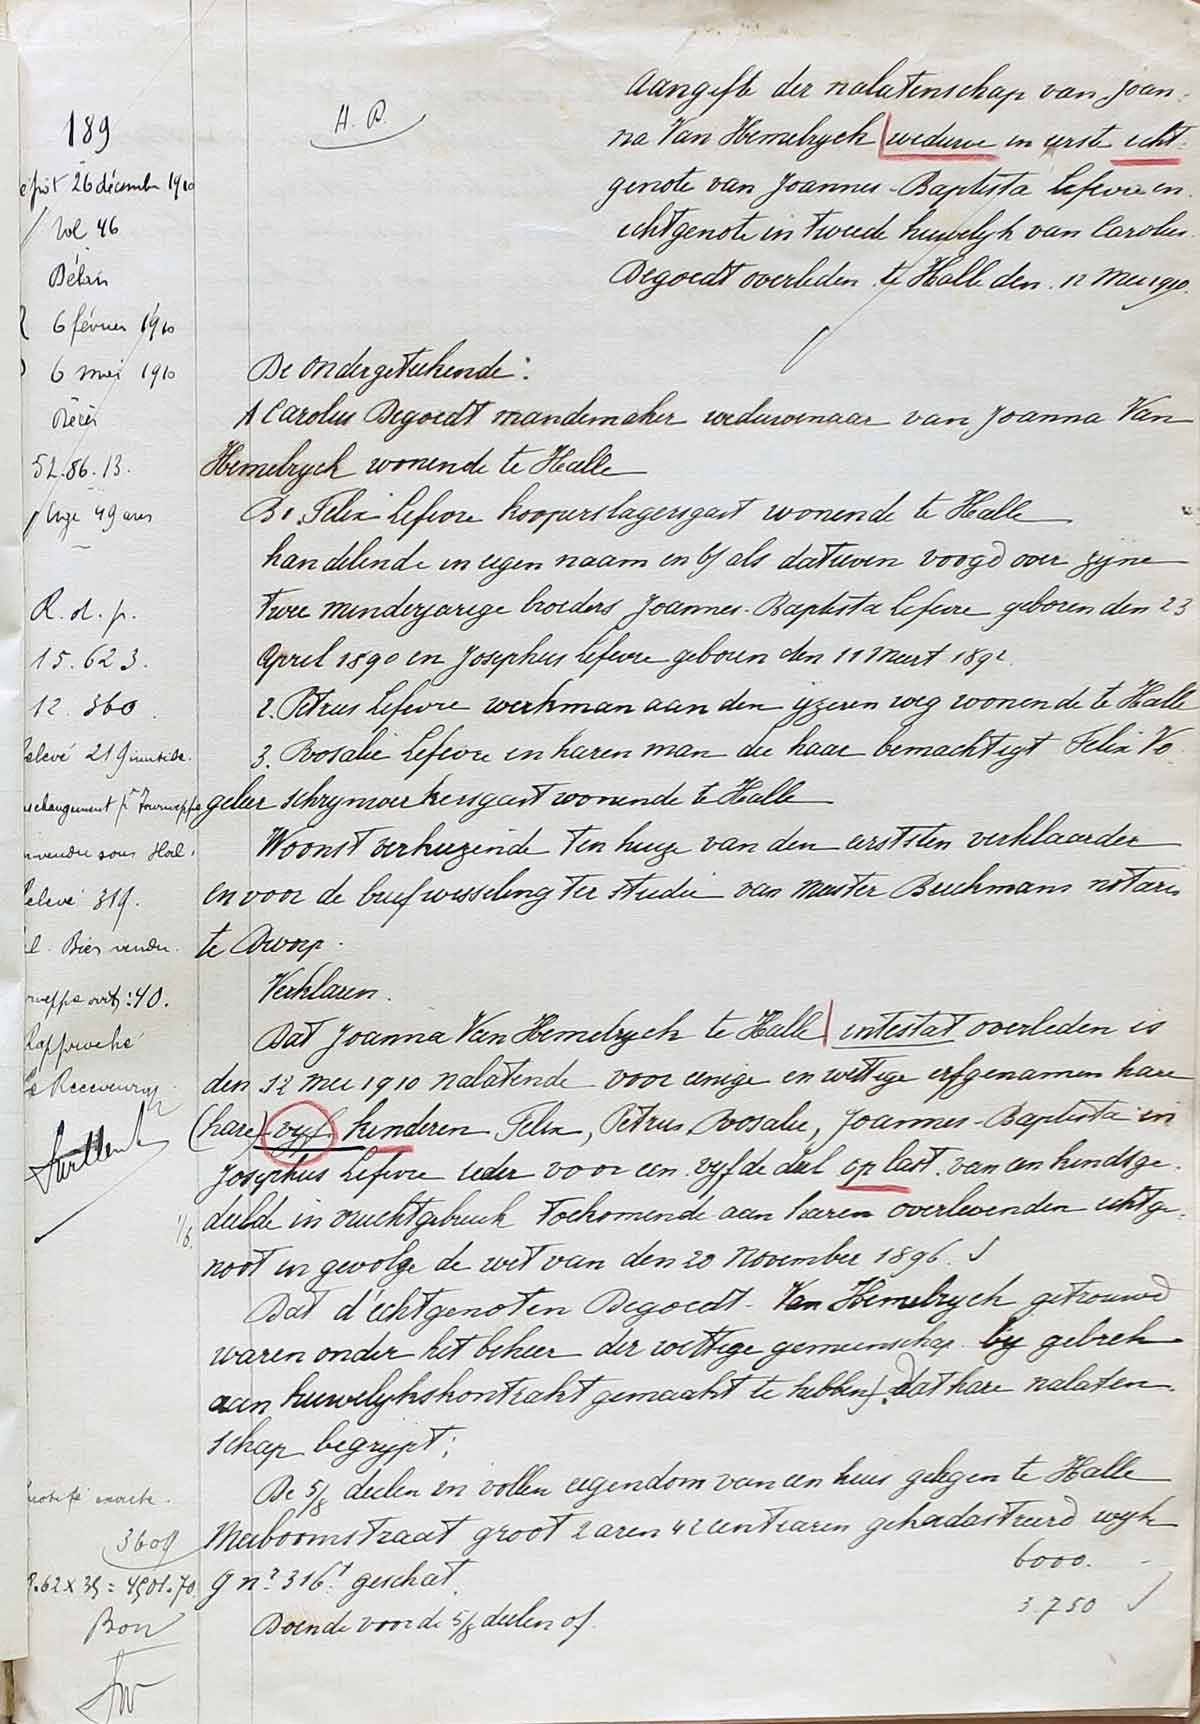 189
26 décembre 1910
Vol 46
Délais
6 février 1910
6 mei 1910
Décès
52.86.13.
Age 49 ans
R. d. p.
15.623.
12.360.
relevé 219
changement pr Tourneppe
vendu sous Hal
relevé 319.
Bien vendu
art: 40.
Rapproché
Le Receveur
1/6.
exacte.
3609
.62 x 35 = 4501.70
Bon
H. D.
Aangifte der nalatenschap van Joan-
na Van Hemelryck weduwe in eerste echt-
genote van Joannes-Baptista Lefevre en
echtgenote in tweede huwelyk van Carolus
Degoedt overleden te Halle den 12 Mei 1910.
De Ondergeteekende:
A Carolus Degoedt mandemaker weduwenaar van Joanna Van
Hemelryck wonende te Halle
B 1. Felix Lefevre kooperslagersgast wonende te Halle
handelende in eigen naam en als datieven voogd over zyne
twee minderjarige broeders Joannes-Baptista Lefevre geboren den 23
April 1890 en Josephus Lefevre geboren den 11 Meert 1892.
2. Petrus Lefevre werkman aan den yzeren weg wonende te Halle
3. Rosalie Lefevre en haren man die haar bemachtigt Felix Vo
geleer schrynwerkersgast wonende te Halle
Woonst verkiezende ten huize van den eersten verklaarder
en voor de briefwisseling ter studie van Meester Beeckmans notaris
te Dworp.
Verklaren.
Dat Joanna Van Hemelryck te Halle intestat overleden is
den 12 Mei 1910 nalatende voor eenige en wettige erfgenamen hare
(hare) vyf kinderen Felix, Petrus, Rosalie, Joannes-Baptista en
Josephus Lefevre ieder voor een vyfde deel op last van een kindsge-
deelde in vruchtgebruik toekomende aan haren overlevenden echtge-
noot in gevolge de wet van den 20 November 1896.
Dat d'echtgenoten Degoedt-Van Hemelryck getrouwd
waren onder het beheer der wettige gemeenschap by gebrek
aan huwelykskontrakt gemaakt te hebben). dat hare nalaten-
schap begrypt:
De 5/8 deelen in vollen eigendom van een huis gelegen te Halle
Meiboomstraat groot 2 aren 42 centiaren gekadastreerd wyk
G nr 316t geschat 6000.
Doende voor de 5/8 deelen of 3.750